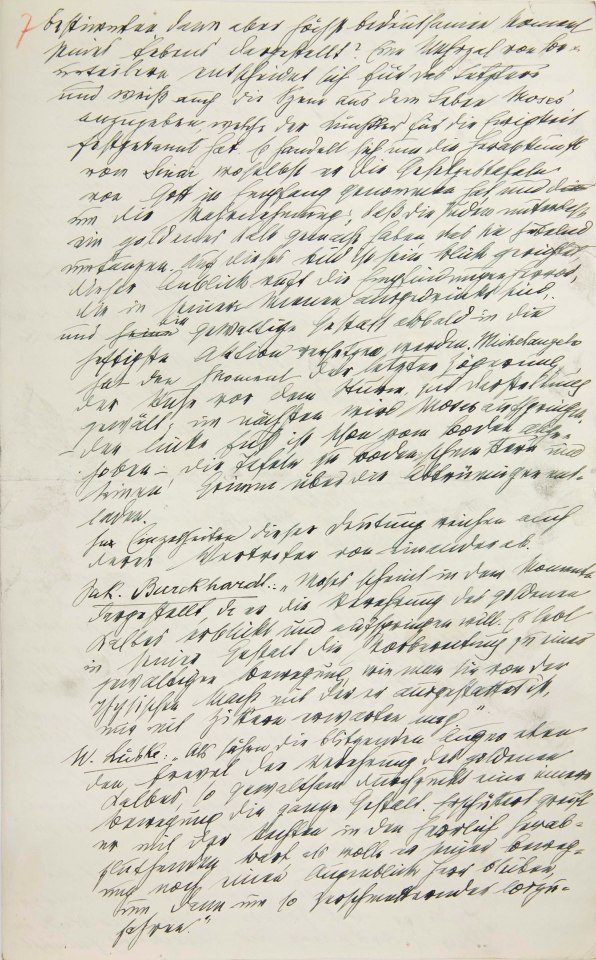 7 bestimmten dann aber höchst bedeutsamen Moment
seines Lebens dargestellt? Eine Mehrzal von Be-
urteilern entscheidet sich für das Letztere
und weiß auch die Szene aus dem Leben Moses'
anzugeben, welche der Künstler für die Ewigkeit
festgebannt hat. Es handelt sich um die Herabkunft
vom Sinai, woselbst er die Gesetzestafeln
von Gott in Empfang genommen hat und
um die Wahrnehmung, daß die Juden unterdeß
ein goldenes Kalb gemacht haben, das sie jubelnd
umtanzen. Auf dieses Bild ist sein Blick gerichtet,
dieser Anblick ruft die Empfindungen hervor,
die in seinen Mienen ausgedrückt sind,
und die gewaltige Gestalt alsbald in die
heftigste Aktion versetzen werden. Michelangelo
hat den Moment der letzten Zögerung,
der Ruhe vor dem Sturm, zur Darstellung
gewält; im nächsten wird Moses aufspringen,
– der linke Fuß ist schon vom Boden abge-
hoben – die Tafeln zu Boden schmettern und
seinen Grimm über die Abtrünnigen ent-
laden.
In Einzelheiten dieser Deutung weichen auch
deren Vertreter von einander ab.
Jak. Burckhardt: „Moses scheint in dem Momente
dargestellt, da er die Verehrung des goldenen
Kalbes erblickt und aufspringen will. Es lebt
in seiner Gestalt die Vorbereitung zu einer
gewaltigen Bewegung, wie man sie von der
physischen Macht, mit der er ausgestattet ist,
nur mit Zittern erwarten mag."
W. Lübke: „Als sähen die blitzenden Augen eben
den Frevel der Verehrung des goldenen
Kalbes, so gewaltsam durchzuckt eine innere
Bewegung die ganze Gestalt. Erschüttert greift
er mit der Rechten in den herrlich herab-
flutenden Bart, als wolle er seiner Beweg-
ung noch einen Augenblick Herr bleiben,
um dann um so zerschmetternder loszu-
fahren."